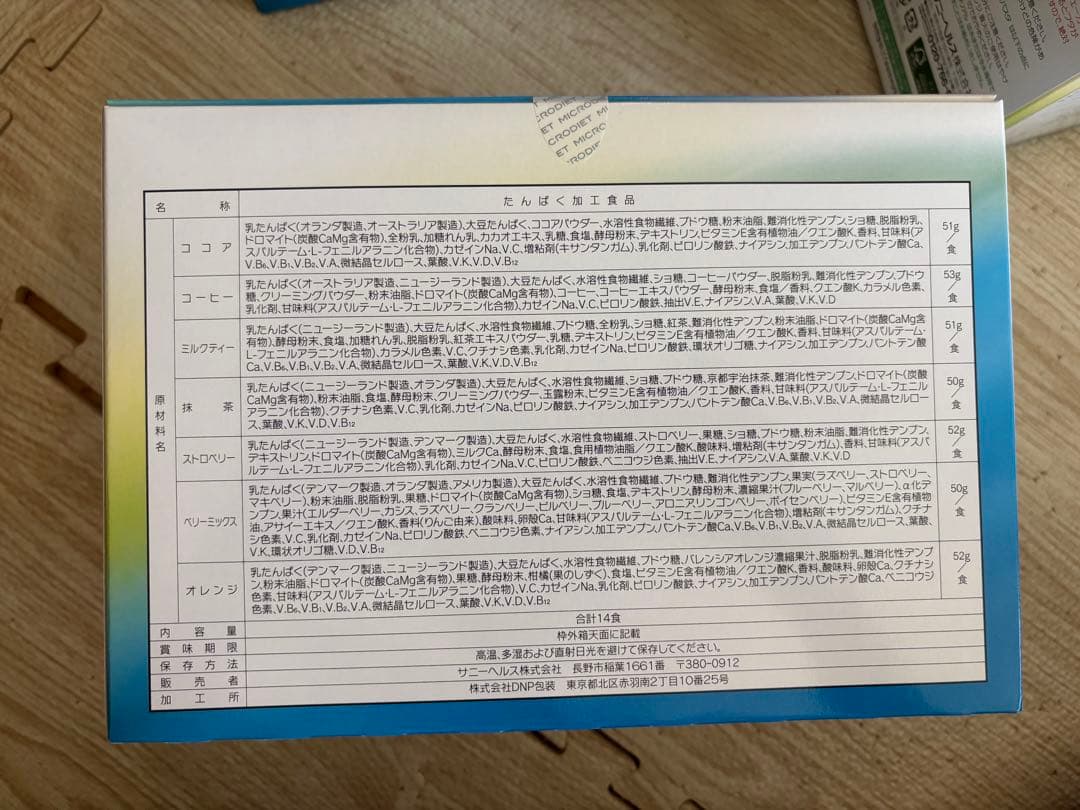 CRODIET MICROD
ET MICRO
CRODIET MICRO
ET MICRO
CRODIE
ーヘルス株式会社
名称
たんぱく加工食品
原材料名
ココア
乳たんぱく(オランダ製造、オーストラリア製造)、大豆たんぱく、ココアパウダー、水溶性食物繊維、ブドウ糖、粉末油脂、難消化性デンプン、ショ糖、脱脂粉乳、
ドロマイト(炭酸CaMg含有物)、全粉乳、加糖れん乳、カカオエキス、乳糖、食塩、酵母粉末、デキストリン、ビタミンE含有植物油/クエン酸K、香料、甘味料(ア
スパルテーム・L-フェニルアラニン化合物)、カゼインNa、V.C、増粘剤(キサンタンガム)、乳化剤、ピロリン酸鉄、ナイアシン、加工デンプン、パントテン酸Ca、
V.B₆、V.B₁、V.B₂、V.A、微結晶セルロース、葉酸、V.K、V.D、V.B₁₂
51g/食
コーヒー
乳たんぱく(オーストラリア製造)、大豆たんぱく、水溶性食物繊維、ショ糖、コーヒーパウダー、脱脂粉乳、難消化性デンプン、ブドウ
糖、クリーミングパウダー、粉末油脂、ドロマイト(炭酸CaMg含有物)、コーヒー、コーヒーエキスパウダー、酵母粉末、食塩/香料、クエン酸K、カラメル色素、
乳化剤、甘味料(アスパルテーム・L-フェニルアラニン化合物)、カゼインNa、V.C、ピロリン酸鉄、抽出V.E、ナイアシン、V.A、葉酸、V.K、V.D
53g/食
ミルクティー
乳たんぱく(ニュージーランド製造)、大豆たんぱく、水溶性食物繊維、ブドウ糖、全粉乳、ショ糖、紅茶、難消化性デンプン、粉末油脂、ドロマイト(炭酸CaMg含
有物)、酵母粉末、食塩、加糖れん乳、脱脂粉乳、紅茶エキスパウダー、乳糖、デキストリン、ビタミンE含有植物油/クエン酸K、香料、甘味料(アスパルテーム・
L-フェニルアラニン化合物)、カラメル色素、V.C、クチナシ色素、乳化剤、カゼインNa、ピロリン酸鉄、環状オリゴ糖、ナイアシン、加工デンプン、パントテン酸
Ca、V.B₆、V.B₁、V.B₂、V.A、微結晶セルロース、葉酸、V.K、V.D、V.B₁₂
51g/食
抹茶
乳たんぱく(ニュージーランド製造、オランダ製造)、大豆たんぱく、水溶性食物繊維、ショ糖、ブドウ糖、京都宇治抹茶、難消化性デンプン、ドロマイト(炭酸
CaMg含有物)、粉末油脂、食塩、酵母粉末、クリーミングパウダー、玉露粉末、ビタミンE含有植物油/クエン酸K、香料、甘味料(アスパルテーム・L-フェニル
アラニン化合物)、クチナシ色素、V.C、乳化剤、カゼインNa、ピロリン酸鉄、ナイアシン、加工デンプン、パントテン酸Ca、V.B₆、V.B₁、V.B₂、V.A、微結晶セルロー
ス、葉酸、V.K、V.D、V.B₁₂
50g/食
ストロベリー
乳たんぱく(ニュージーランド製造、デンマーク製造)、大豆たんぱく、水溶性食物繊維、ストロベリー、果糖、ショ糖、ブドウ糖、粉末油脂、難消化性デンプン、
デキストリン、ドロマイト(炭酸CaMg含有物)、ミルクCa、酵母粉末、食塩、食用植物油脂/クエン酸K、酸味料、増粘剤(キサンタンガム)、香料、甘味料(アスパ
ルテーム・L-フェニルアラニン化合物)、乳化剤、カゼインNa、V.C、ピロリン酸鉄、ベニコウジ色素、抽出V.E、ナイアシン、V.A、葉酸、V.K、V.D
52g/食
ベリーミックス
乳たんぱく(デンマーク製造、オランダ製造、アメリカ製造)、大豆たんぱく、水溶性食物繊維、ブドウ糖、難消化性デンプン、果実(ラズベリー、ストロベリー、
マキベリー)、粉末油脂、脱脂粉乳、果糖、ドロマイト(炭酸CaMg含有物)、ショ糖、食塩、デキストリン、酵母粉末、濃縮果汁(ブルーベリー、マルベリー)、α化デ
ンプン、果汁(エルダーベリー、カシス、ラズベリー、クランベリー、ビルベリー、ブルーベリー、アロニア、リンゴンベリー、ボイセンベリー)、ビタミンE含有植物
油、アサイーエキス/クエン酸K、香料(りんご由来)、酸味料、卵殻Ca、甘味料(アスパルテーム・L-フェニルアラニン化合物)、増粘剤(キサンタンガム)、クチナ
シ色素、V.C、乳化剤、カゼインNa、ピロリン酸鉄、ベニコウジ色素、ナイアシン、加工デンプン、パントテン酸Ca、V.B₆、V.B₁、V.B₂、V.A、微結晶セルロース、葉酸、
V.K、環状オリゴ糖、V.D、V.B₁₂
50g/食
オレンジ
乳たんぱく(デンマーク製造、ニュージーランド製造)、大豆たんぱく、水溶性食物繊維、ブドウ糖、バレンシアオレンジ濃縮果汁、脱脂粉乳、難消化性デンプ
ン、粉末油脂、ドロマイト(炭酸CaMg含有物)、果糖、酵母粉末、柑橘(果のしずく)、食塩、ビタミンE含有植物油/クエン酸K、香料、酸味料、卵殻Ca、クチナシ
色素、甘味料(アスパルテーム・L-フェニルアラニン化合物)、V.C、カゼインNa、乳化剤、ピロリン酸鉄、ナイアシン、加工デンプン、パントテン酸Ca、ベニコウジ
色素、V.B₆、V.B₁、V.B₂、V.A、微結晶セルロース、葉酸、V.K、V.D、V.B₁₂
52g/食
内容量
合計14食
賞味期限
枠外箱天面に記載
保存方法
高温、多湿および直射日光を避けて保存してください。
販売者
サニーヘルス株式会社 長野市稲葉1661番 〒380-0912
加工所
株式会社DNP包装 東京都北区赤羽南2丁目10番25号